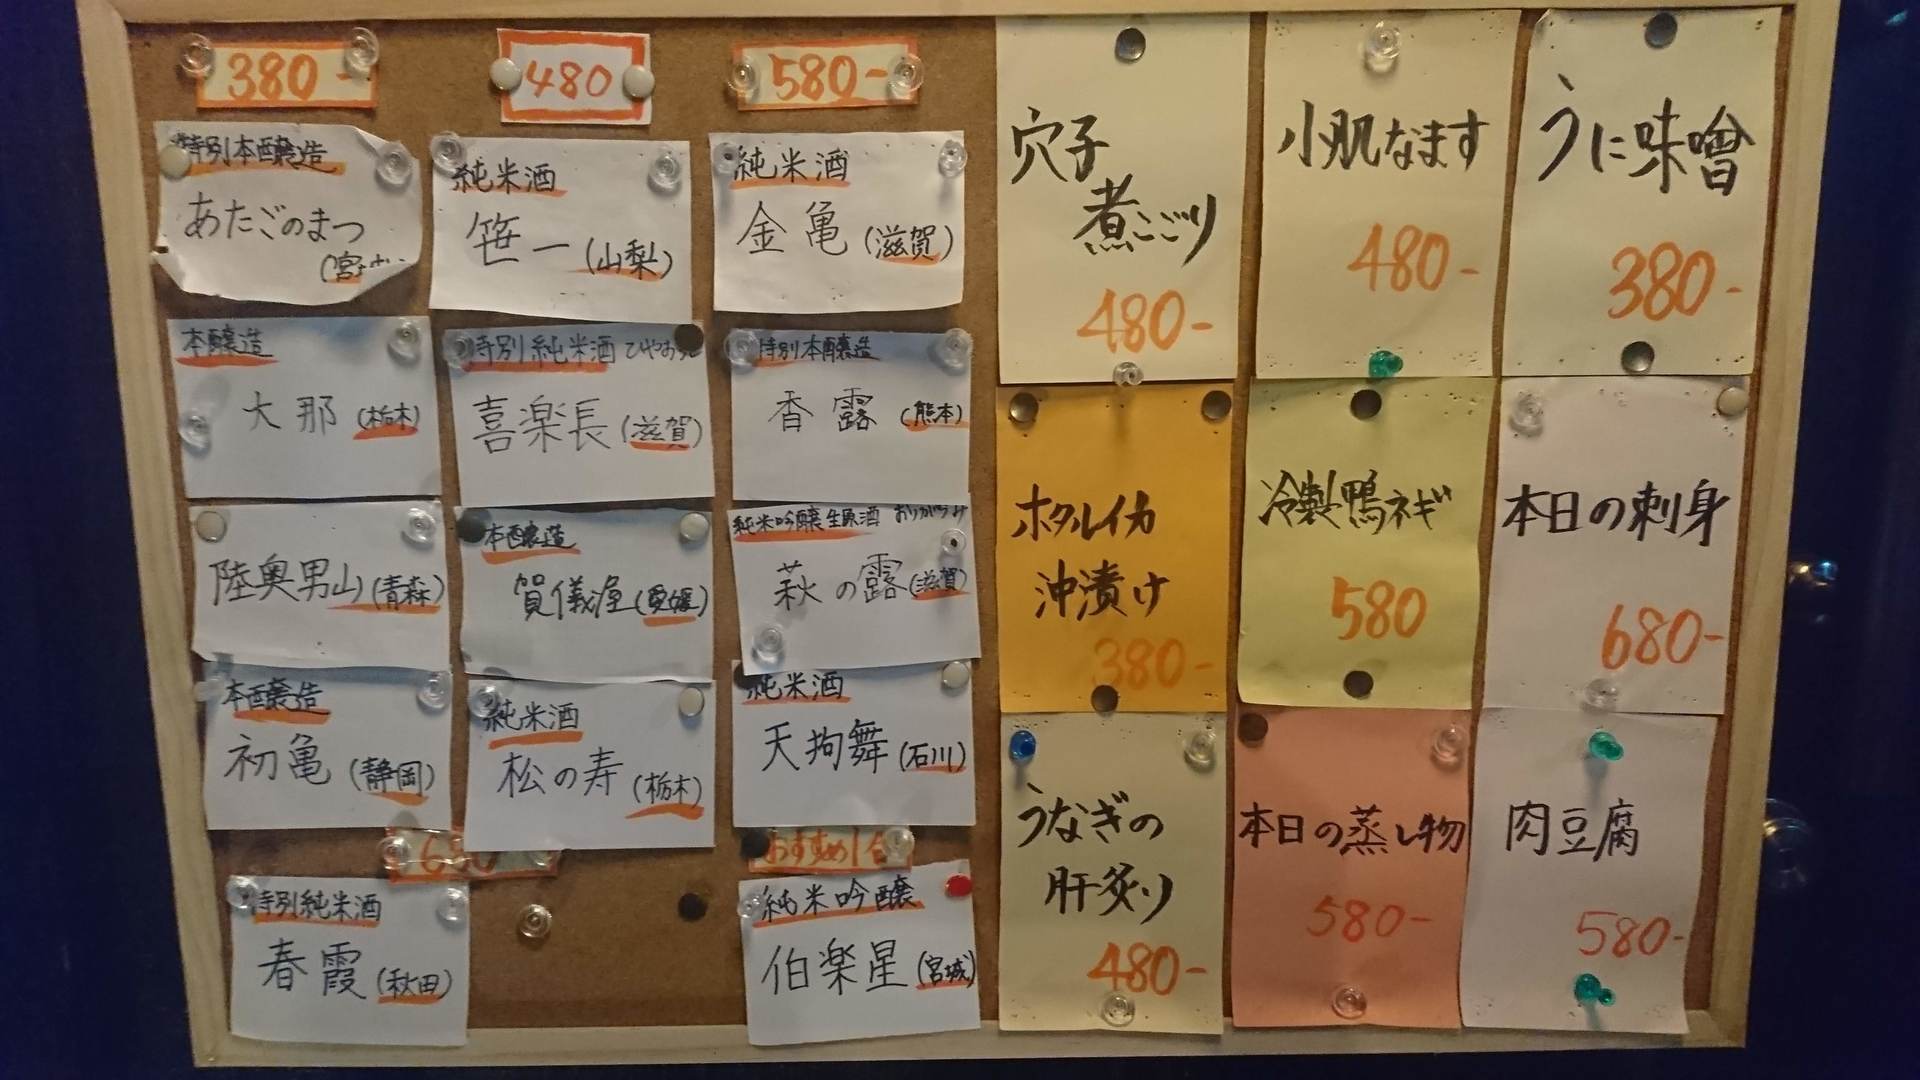 380-
特別本醸造
あたごのまつ
(宮
本醸造
大那 (栃木)
陸奥男山 (青森)
本醸造
初亀 (静岡)
特別純米酒
春霞 (秋田)
480
純米酒
笹一 (山梨)
特別純米酒 ひやおろし
喜楽長 (滋賀)
本醸造
賀儀屋 (愛媛)
純米酒
松の寿 (栃木)
680
580-
純米酒
金亀 (滋賀)
特別本醸造
香露 (熊本)
純米吟醸生原酒 おりがらみ
萩の露 (滋賀)
純米酒
天狗舞 (石川)
おすすめ1合
純米吟醸
伯楽星 (宮城)
穴子
煮こごり
480-
小肌なます
480-
うに味噌
380-
ホタルイカ
沖漬け
380-
冷製鴨ネギ
580
本日の刺身
680-
うなぎの
肝炙り
480-
本日の蒸し物
580-
肉豆腐
580-